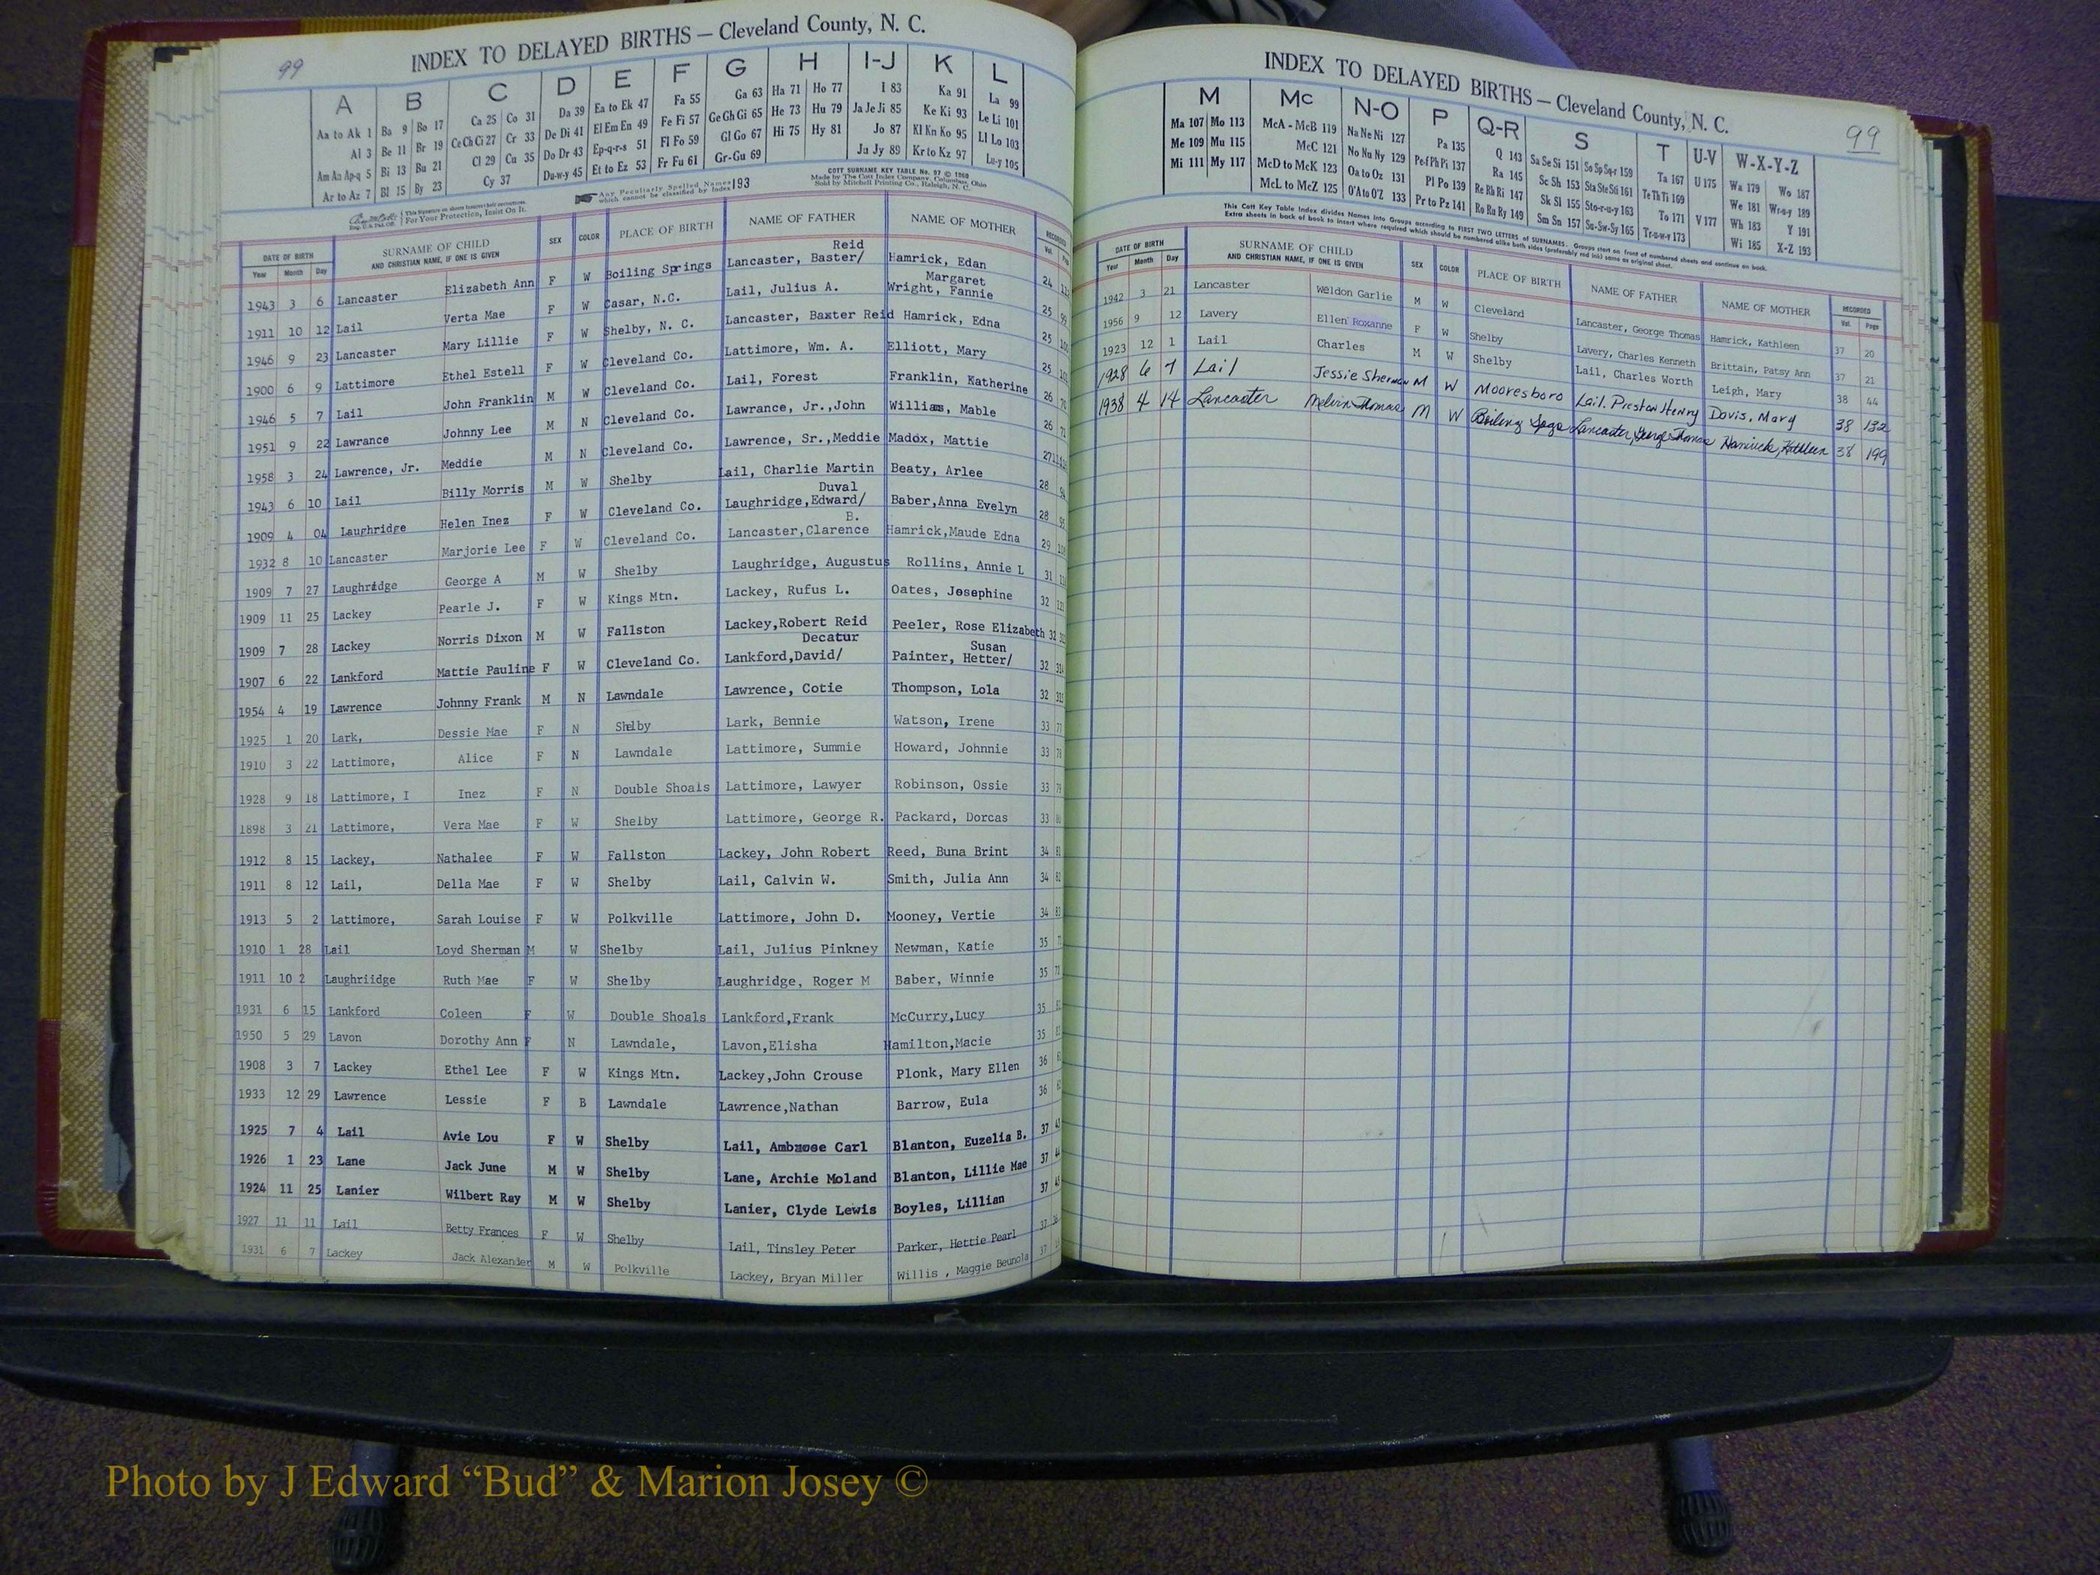 99
INDEX TO DELAYED BIRTHS — Cleveland County, N. C.
A B C D E F G H I-J K L
Aa to Ak 1 Ba 9 Bo 17 Ca 25 Co 31 Da 39 Ea to Ek 47 Fa 55 Ga 63 Ha 71 Ho 77 I 83 Ka 91 La 99
Al 3 Be 11 Br 19 Ce Ch Ci 27 Cr 33 De Di 41 El Em En 49 Fe Fi 57 Ge Gh Gi 65 He 73 Hu 79 Ja Je Ji 85 Ke Ki 93 Le Li 101
Am An Ap-q 5 Bi 13 Bu 21 Cl 29 Cu 35 Do Dr 43 Ep-q-r-s 51 Fl Fo 59 Gl Go 67 Hi 75 Hy 81 Jo 87 Kl Kn Ko 95 Ll Lo 103
Ar to Az 7 Bl 15 By 23 Cy 37 Du-w-y 45 Et to Ez 53 Fr Fu 61 Gr-Gu 69 Ju Jy 89 Kr to Kz 97 Lu-y 105
This Signature on sheets insures their correctness.
For Your Protection, Insist On It.
Any Peculiarly Spelled Names
which cannot be classified by Index 193
COTT SURNAME KEY TABLE No. 97 © 1960
Made by The Cott Index Company, Columbus, Ohio
Sold by Mitchell Printing Co., Raleigh, N. C.
DATE OF BIRTH SURNAME OF CHILD SEX COLOR PLACE OF BIRTH NAME OF FATHER NAME OF MOTHER RECORDED
Year Month Day AND CHRISTIAN NAME, IF ONE IS GIVEN Vol.
Reid
1943 3 6 Lancaster Elizabeth Ann F W Boiling Springs Lancaster, Baster/ Hamrick, Edan 24
Margaret
1911 10 12 Lail Verta Mae F W Casar, N.C. Lail, Julius A. Wright, Fannie 25
1946 9 23 Lancaster Mary Lillie F W Shelby, N. C. Lancaster, Baxter Reid Hamrick, Edna 25
1900 6 9 Lattimore Ethel Estell F W Cleveland Co. Lattimore, Wm. A. Elliott, Mary 25
1946 5 7 Lail John Franklin M W Cleveland Co. Lail, Forest Franklin, Katherine 26
1951 9 22 Lawrance Johnny Lee M N Cleveland Co. Lawrance, Jr.,John Williams, Mable 26
1958 3 24 Lawrence, Jr. Meddie M N Cleveland Co. Lawrence, Sr.,Meddie Madox, Mattie 27
1943 6 10 Lail Billy Morris M W Shelby Lail, Charlie Martin Beaty, Arlee 28
Duval
1909 4 04 Laughridge Helen Inez F W Cleveland Co. Laughridge,Edward/ Baber,Anna Evelyn 28
B.
1932 8 10 Lancaster Marjorie Lee F W Cleveland Co. Lancaster,Clarence Hamrick,Maude Edna 29
1909 7 27 Laughridge George A M W Shelby Laughridge, Augustus Rollins, Annie L 31
1909 11 25 Lackey Pearle J. F W Kings Mtn. Lackey, Rufus L. Oates, Josephine 32
1909 7 28 Lackey Norris Dixon M W Fallston Lackey,Robert Reid Peeler, Rose Elizabeth 32
Decatur Susan
1907 6 22 Lankford Mattie Pauline F W Cleveland Co. Lankford,David/ Painter, Hetter/ 32
1954 4 19 Lawrence Johnny Frank M N Lawndale Lawrence, Cotie Thompson, Lola 32
1925 1 20 Lark, Dessie Mae F N Shelby Lark, Bennie Watson, Irene 33
1910 3 22 Lattimore, Alice F N Lawndale Lattimore, Summie Howard, Johnnie 33
1928 9 18 Lattimore, I Inez F N Double Shoals Lattimore, Lawyer Robinson, Ossie 33
1898 3 21 Lattimore, Vera Mae F W Shelby Lattimore, George R. Packard, Dorcas 33
1912 8 15 Lackey, Nathalee F W Fallston Lackey, John Robert Reed, Buna Brint 34 81
1911 8 12 Lail, Della Mae F W Shelby Lail, Calvin W. Smith, Julia Ann 34 82
1913 5 2 Lattimore, Sarah Louise F W Polkville Lattimore, John D. Mooney, Vertie 34 83
1910 1 28 Lail Loyd Sherman M W Shelby Lail, Julius Pinkney Newman, Katie 35
1911 10 2 Laughriidge Ruth Mae F W Shelby Laughridge, Roger M Baber, Winnie 35
1931 6 15 Lankford Coleen F W Double Shoals Lankford,Frank McCurry,Lucy 35
1950 5 29 Lavon Dorothy Ann F N Lawndale, Lavon,Elisha Hamilton,Macie 35
1908 3 7 Lackey Ethel Lee F W Kings Mtn. Lackey,John Crouse Plonk, Mary Ellen 36
1933 12 29 Lawrence Lessie F B Lawndale Lawrence,Nathan Barrow, Eula 36
1925 7 4 Lail Avie Lou F W Shelby Lail, Ambrose Carl Blanton, Euzelia B. 37
1926 1 23 Lane Jack June M W Shelby Lane, Archie Moland Blanton, Lillie Mae 37
1924 11 25 Lanier Wilbert Ray M W Shelby Lanier, Clyde Lewis Boyles, Lillian 37
1927 11 11 Lail Betty Frances F W Shelby Lail, Tinsley Peter Parker, Hettie Pearl 37
1931 6 7 Lackey Jack Alexander M W Polkville Lackey, Bryan Miller Willis , Maggie Beunola 37
INDEX TO DELAYED BIRTHS — Cleveland County, N. C.
99
M Mc N-O P Q-R S T U-V W-X-Y-Z
Ma 107 Mo 113 McA - McB 119 Na Ne Ni 127 Pa 135 Q 143 Sa Se Si 151 So Sp Sq-r 159 Ta 167 U 175 Wa 179 Wo 187
Me 109 Mu 115 McC 121 No Nu Ny 129 Pe-f Ph Pi 137 Ra 145 Sc Sh 153 Sta Ste Sti 161 Te Th Ti 169 We 181 Wr-u-y 189
Mi 111 My 117 McD to McK 123 Oa to Oz 131 Pl Po 139 Re Rh Ri 147 Sk Sl 155 Sto-r-u-y 163 To 171 V 177 Wh 183 Y 191
McL to McZ 125 O'A to O'Z 133 Pr to Pz 141 Ro Ru Ry 149 Sm Sn 157 Su-Sw-Sy 165 Tr-u-w-y 173 Wi 185 X-Z 193
This Cott Key Table Index divides Names into Groups according to FIRST TWO LETTERS of SURNAMES. Groups start on front of numbered sheets and continue on back.
Extra sheets in back of book to insert where required which should be numbered alike both sides (preferably red ink) same as original sheet.
DATE OF BIRTH SURNAME OF CHILD SEX COLOR PLACE OF BIRTH NAME OF FATHER NAME OF MOTHER RECORDED
Year Month Day AND CHRISTIAN NAME, IF ONE IS GIVEN Vol. Page
1942 3 21 Lancaster Weldon Garlie M W Cleveland Lancaster, George Thomas Hamrick, Kathleen 37 20
1956 9 12 Lavery Ellen Roxanne F W Shelby Lavery, Charles Kenneth Brittain, Patsy Ann 37 21
1923 12 1 Lail Charles M W Shelby Lail, Charles Worth Leigh, Mary 38 44
1928 6 7 Lail Jessie Sherman M W Mooresboro Lail, Preston Henry Davis, Mary 38 132
1938 4 14 Lancaster Melvin Thomas M W Boiling Spgs Lancaster, George Thomas Hamrick, Kathleen 38 199
Photo by J Edward “Bud” & Marion Josey ©